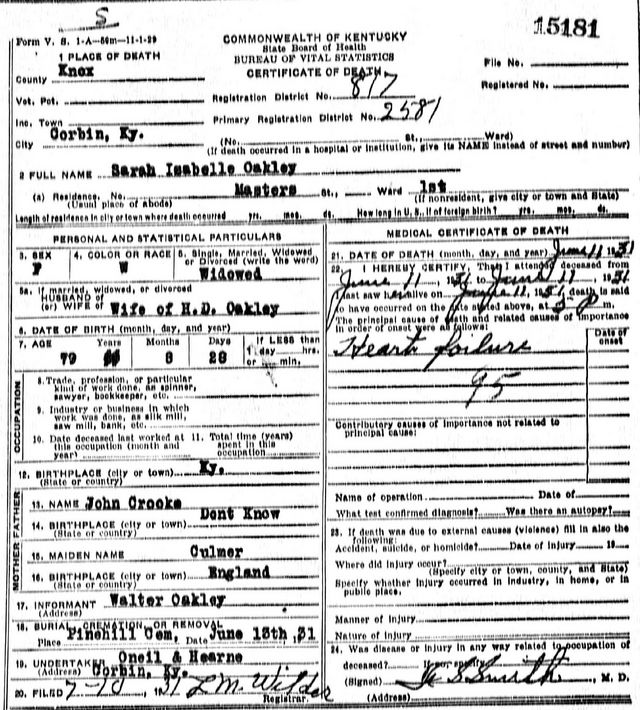 S
15181
Form V. S. 1-A-50m-11-1-29
COMMONWEALTH OF KENTUCKY
State Board of Health
BUREAU OF VITAL STATISTICS
CERTIFICATE OF DEATH
1 PLACE OF DEATH
County Knox
File No.
Registered No.
Vot. Pct.
Registration District No. 817
Inc. Town
Primary Registration District No. 2581
City Corbin, Ky.
(No. St., Ward)
(If death occurred in a hospital or institution, give its NAME instead of street and number)
2 FULL NAME Sarah Isabelle Oakley
(a) Residence. No. Masters St., Ward 1st
(Usual place of abode) (If nonresident, give city or town and State)
Length of residence in city or town where death occurred yrs. mos. ds. How long in U. S. if of foreign birth? yrs. mos. ds.
PERSONAL AND STATISTICAL PARTICULARS
3. SEX F
4. COLOR OR RACE W
5. Single, Married, Widowed or Divorced (write the word)
Widowed
5a. If married, widowed, or divorced
HUSBAND of
(or) WIFE of Wife of H.D. Oakley
6. DATE OF BIRTH (month, day, and year)
7. AGE Years Months Days If LESS than
79 8 28 1 day hrs.
or min.
OCCUPATION
8. Trade, profession, or particular
kind of work done, as spinner,
sawyer, bookkeeper, etc.
9. Industry or business in which
work was done, as silk mill,
saw mill, bank, etc.
10. Date deceased last worked at this occupation (month and year)
11. Total time (years) spent in this occupation
12. BIRTHPLACE (city or town) Ky.
(State or country)
FATHER
13. NAME John Crooke
14. BIRTHPLACE (city or town) Dont Know
(State or country)
MOTHER
15. MAIDEN NAME Culmer
16. BIRTHPLACE (city or town) England
(State or country)
17. INFORMANT Walter Oakley
(Address)
18. BURIAL, CREMATION, OR REMOVAL
Place Pinehill Cem, Date June 13th, 31
19. UNDERTAKER Oneil & Hearne
(Address) Corbin, Ky.
20. FILED 7-10, 1931 L M. Wilder
Registrar.
MEDICAL CERTIFICATE OF DEATH
21. DATE OF DEATH (month, day, and year) June 11 1931
22. I HEREBY CERTIFY, That I attended deceased from
June 11, 1931 to June 11, 1931
I last saw her alive on June 11, 1931 death is said
to have occurred on the date stated above, at 5 P m.
The principal cause of death and related causes of importance
in order of onset were as follows:
Date of onset
Heart failure
95
Contributory causes of importance not related to
principal cause:
Name of operation Date of
What test confirmed diagnosis? Was there an autopsy?
23. If death was due to external causes (violence) fill in also the
following:
Accident, suicide, or homicide? Date of injury 19
Where did injury occur?
(Specify city or town, county, and State)
Specify whether injury occurred in industry, in home, or in
public place.
Manner of injury
Nature of injury
24. Was disease or injury in any way related to occupation of
deceased? If so, specify
(Signed) Smith, M. D.
(Address)